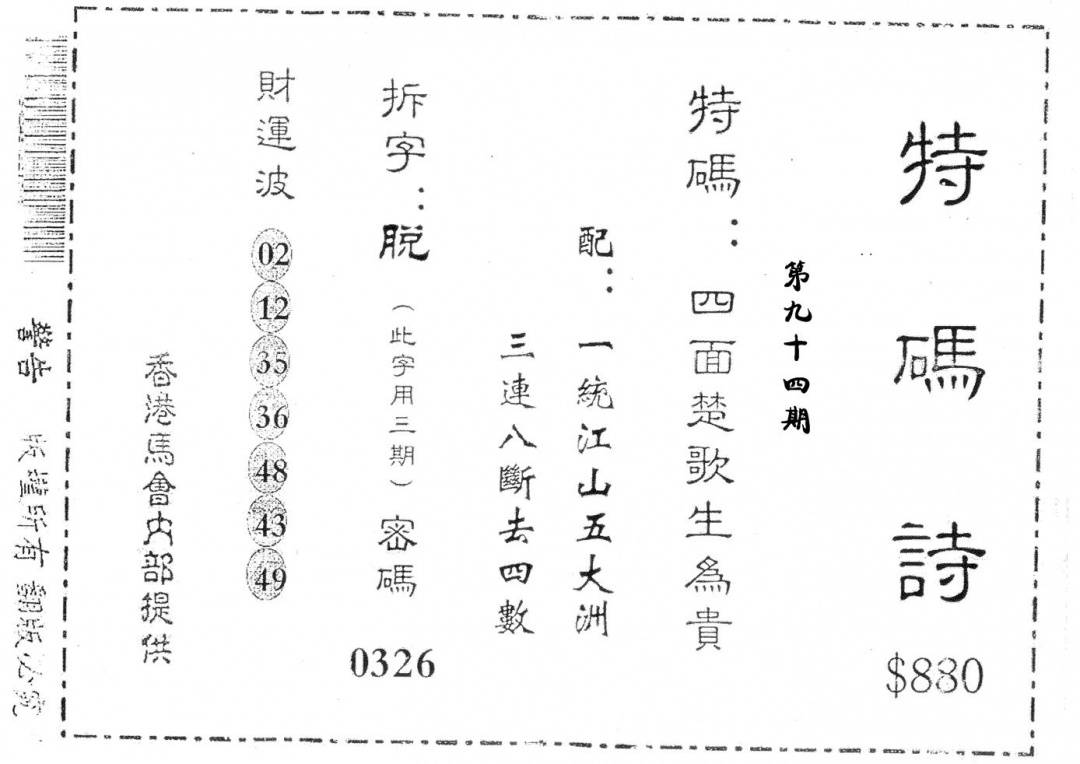 特碼詩
$880
第九十四期
特碼：四面楚歌生為貴
配：一統江山五大洲
三連八斷去四數
拆字：脫（此字用三期）密碼
0326
財運波 02 12 35 36 48 43 49
香港馬會內部提供
警告 版權所有 翻版必究